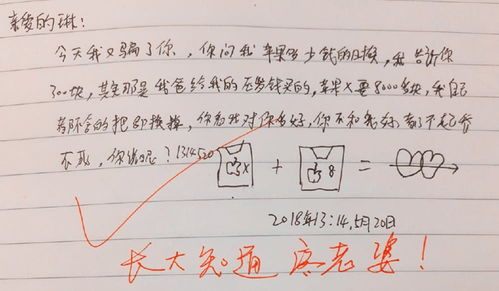 亲爱的琳:
今天我又骗了你,你问我苹果多少钱的时候,我告诉你
300块,其实那是我爸给我的压岁钱买的,苹果X要8000多块,我自己
都不舍的把8换掉,你看我对你多好,你不和我好都对不起乔
不死,你说呢?1314520
X + 8 =
2018年13:14,5月20日
长大知道疼老婆!